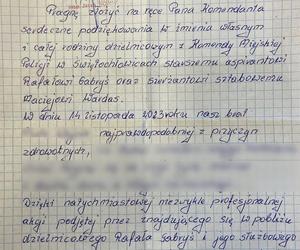 Pragnę złożyć na ręce Pana Komendanta
serdeczne podziękowania w imieniu własnym
i całej rodziny dzielnicowym z Komendy Miejskiej
Policji w Świętochłowicach starszemu aspirantowi
Rafałowi Gabryś oraz sierżantowi sztabowemu
Maciejowi Wardas.
W dniu 14 listopada 2023 roku nasz brat
najprawdopodobniej z przyczyn
zdrowotnych,
Dzięki natychmiastowej niezwykle profesjonalnej
akcji podjętej przez znajdującego się w pobliżu
dzielnicowego Rafała Gabryś i jego służbowego